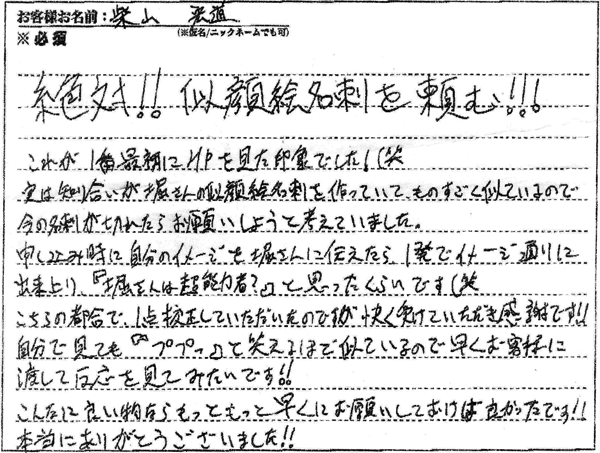 お客様お名前：柴山 宏道
※必須 （※仮名/ニックネームでも可）
絶対!! 似顔絵名刺を頼む!!!
これが1番最初にHPを見た印象でした！（笑
実は知り合いが堀さんの似顔絵名刺を作っていて、ものすごく似ているので
今の名刺が切れたらお願いしようと考えていました。
申し込み時に自分のイメージを堀さんに伝えたら、1発でイメージ通りに
出来上り、『堀さんは超能力者？』と思ったくらいです（笑
こちらの都合で、1点校正していただいたのですが快く受けていただき感謝です!!
自分で見ても『ププっ』と笑えるほど似ているので早くお客様に
渡して反応を見てみたいです!!
こんなに良い物ならもっともっと早くにお願いしておけば良かったです!!
本当にありがとうございました!!